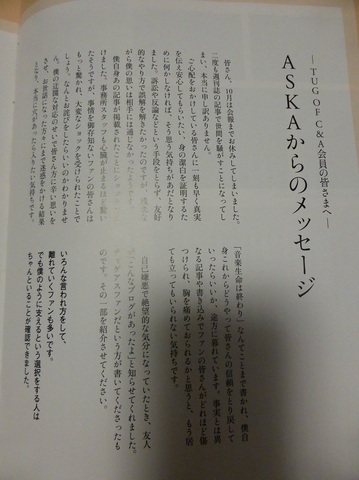 ―TUG OF C&A会員の皆さまへ―
ASKAからのメッセージ
皆さん、10月は会報までお休みしてしまいました。
二度も週刊誌の記事で世間を騒がすことになってし
まい、本当に申し訳ありません。
ご心配をおかけしている皆さんに一刻も早く真実
を伝え安心してもらいたい、身の潔白を証明するた
めに何かしなければ、そう思う気持ちがあだとなり
ました。訴訟や反論などという手段をとらず、友好
的なやり方で誤解を解きたかったのですが、
がら僕の思いは相手には通じなかったようです。
僕自身あの記事が掲載されたことにショックを受
けました。事務所スタッフも心臓が止まるほど驚い
たそうですが、事情を御存知ないファンの皆さんは
もっと驚かれ、大変なショックを受けられたことで
しょう。なんとお詫びをしたらいいのかわかりませ
ん。僕の迂闊な対応のせいで皆さん方に辛い思いを
させ、お世話になった方々には多大な迷惑をかける結果
となり、本当に穴があったら入りたい気持ちです。
「音楽生命は終わり」なんてことまで書かれ、僕自
身これからどうやって皆さんの信頼をとり戻して
いったらいいか、途方に暮れています。事実とは異
なる記事や書き込みでファンの皆さんがどれほど傷
つけられ、胸を痛めておられるかと思うと、もう居
ても立ってもいられない気持ちです。
自己嫌悪で絶望的な気分になっていたとき、友人
が「こんなブログがあったよ」と知らせてくれました。
チャゲアスファンだという方が書いてくださったも
のです。その一部を紹介させてください。
いろんな言われ方をして、
離れていくファンも多いです。
でも僕のように支えるという選択をする人は
ちゃんといることが確認できました。